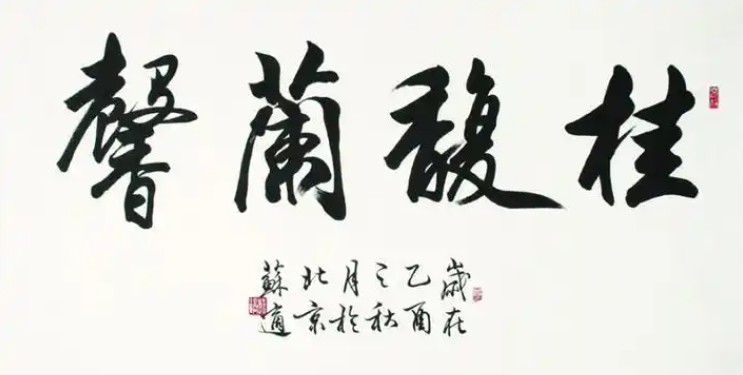 桂馥蘭馨
歲在
乙酉
之秋
月於
北京
蘇適